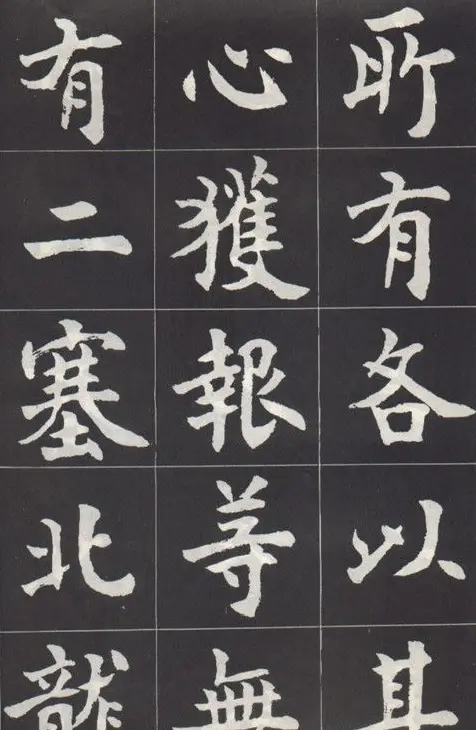 所有各以其
心獲報等無
有二塞北龍